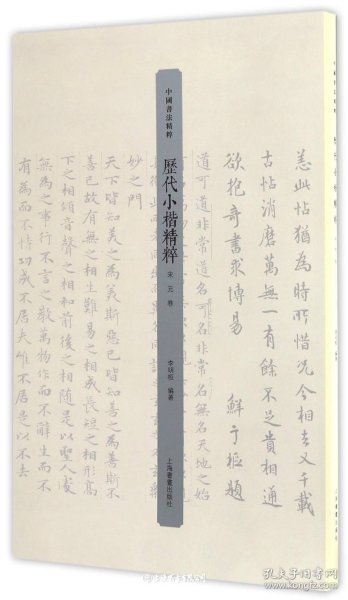 中國書法精粹
歷代小楷精粹
宋元卷
編著
上海書畫出版社
此帖猶為時所惜况今相去又千載
古帖消磨萬無一有餘不足貴相通
欲抱奇書求博易 鮮于樞題
道可道非常道名可名非常名無名天地之始
妙之門
天下皆知美之為美斯惡已皆知善之為善斯不
善已故有無之相生難易之相成長短之相形高
下之相傾音聲之相和前後之相隨是以聖人處
無為之事行不言之教萬物作而不辭生而不
有為而不恃功成不居夫唯不居是以不去
孔夫子旧书网